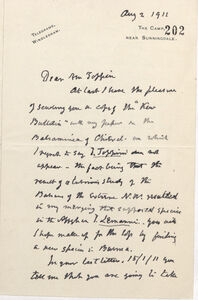 Aug 2 1911
TELEGRAMS,
WINDLESHAM.
THE CAMP,
NEAR SUNNINGDALE.
202
Dear Mr Toppin
At last I have the pleasure
of sending you a copy of the "Kew
Bulletin" with my paper on the
Balsaminea of Chitral. in which
I regret to say I. Toppinii does not
appear — the fact being that the
result of a          study of the
Balsams of the extreme N.W. resulted
in my merging that supposed species
in the         I. Lemannii. you will
I hope make up for the loss by finding
a new species in Burma.
In your last letter. 15/1/11 you
tell me that you are going to take